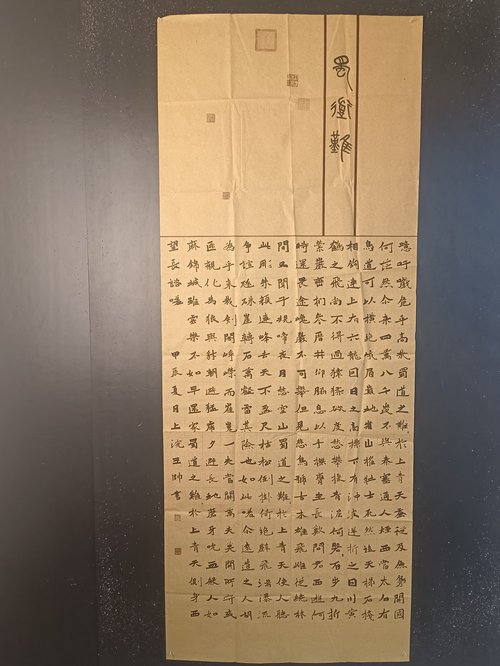 蜀道難
噫吁戲危乎高哉蜀道之難於上青天蠶叢及魚鳧開國
何茫然尒来四萬八千歲不與秦塞通人煙西當太白有
鳥道可以橫絕峨眉巔地崩山摧壯士死然後天梯石棧
相鉤連上有六龍回日之高標下有沖波逆折之回川黃
鶴之飛尚不得過猿猱欲度愁攀援青泥何盤盤百步九折
縈巖巒捫參歷井仰脅息以手撫膺坐長歎問君西遊何
時還畏途巉巖不可攀但見悲鳥號古木雄飛雌從繞林
間又聞子規啼夜月愁空山蜀道之難於上青天使人聽
此凋朱顏連峰去天不盈尺枯松倒掛倚絕壁飛湍瀑流
爭喧豗砯崖轉石萬壑雷其險也如此嗟尒遠道之人胡
為乎来哉劍閣崢嶸而崔嵬一夫當關萬夫莫開所守或
匪親化為狼與豺朝避猛虎夕避長蛇磨牙吮血殺人如
麻錦城雖雲樂不如早還家蜀道之難於上青天側身西
望長諮嗟 甲辰夏月上浣 帥書